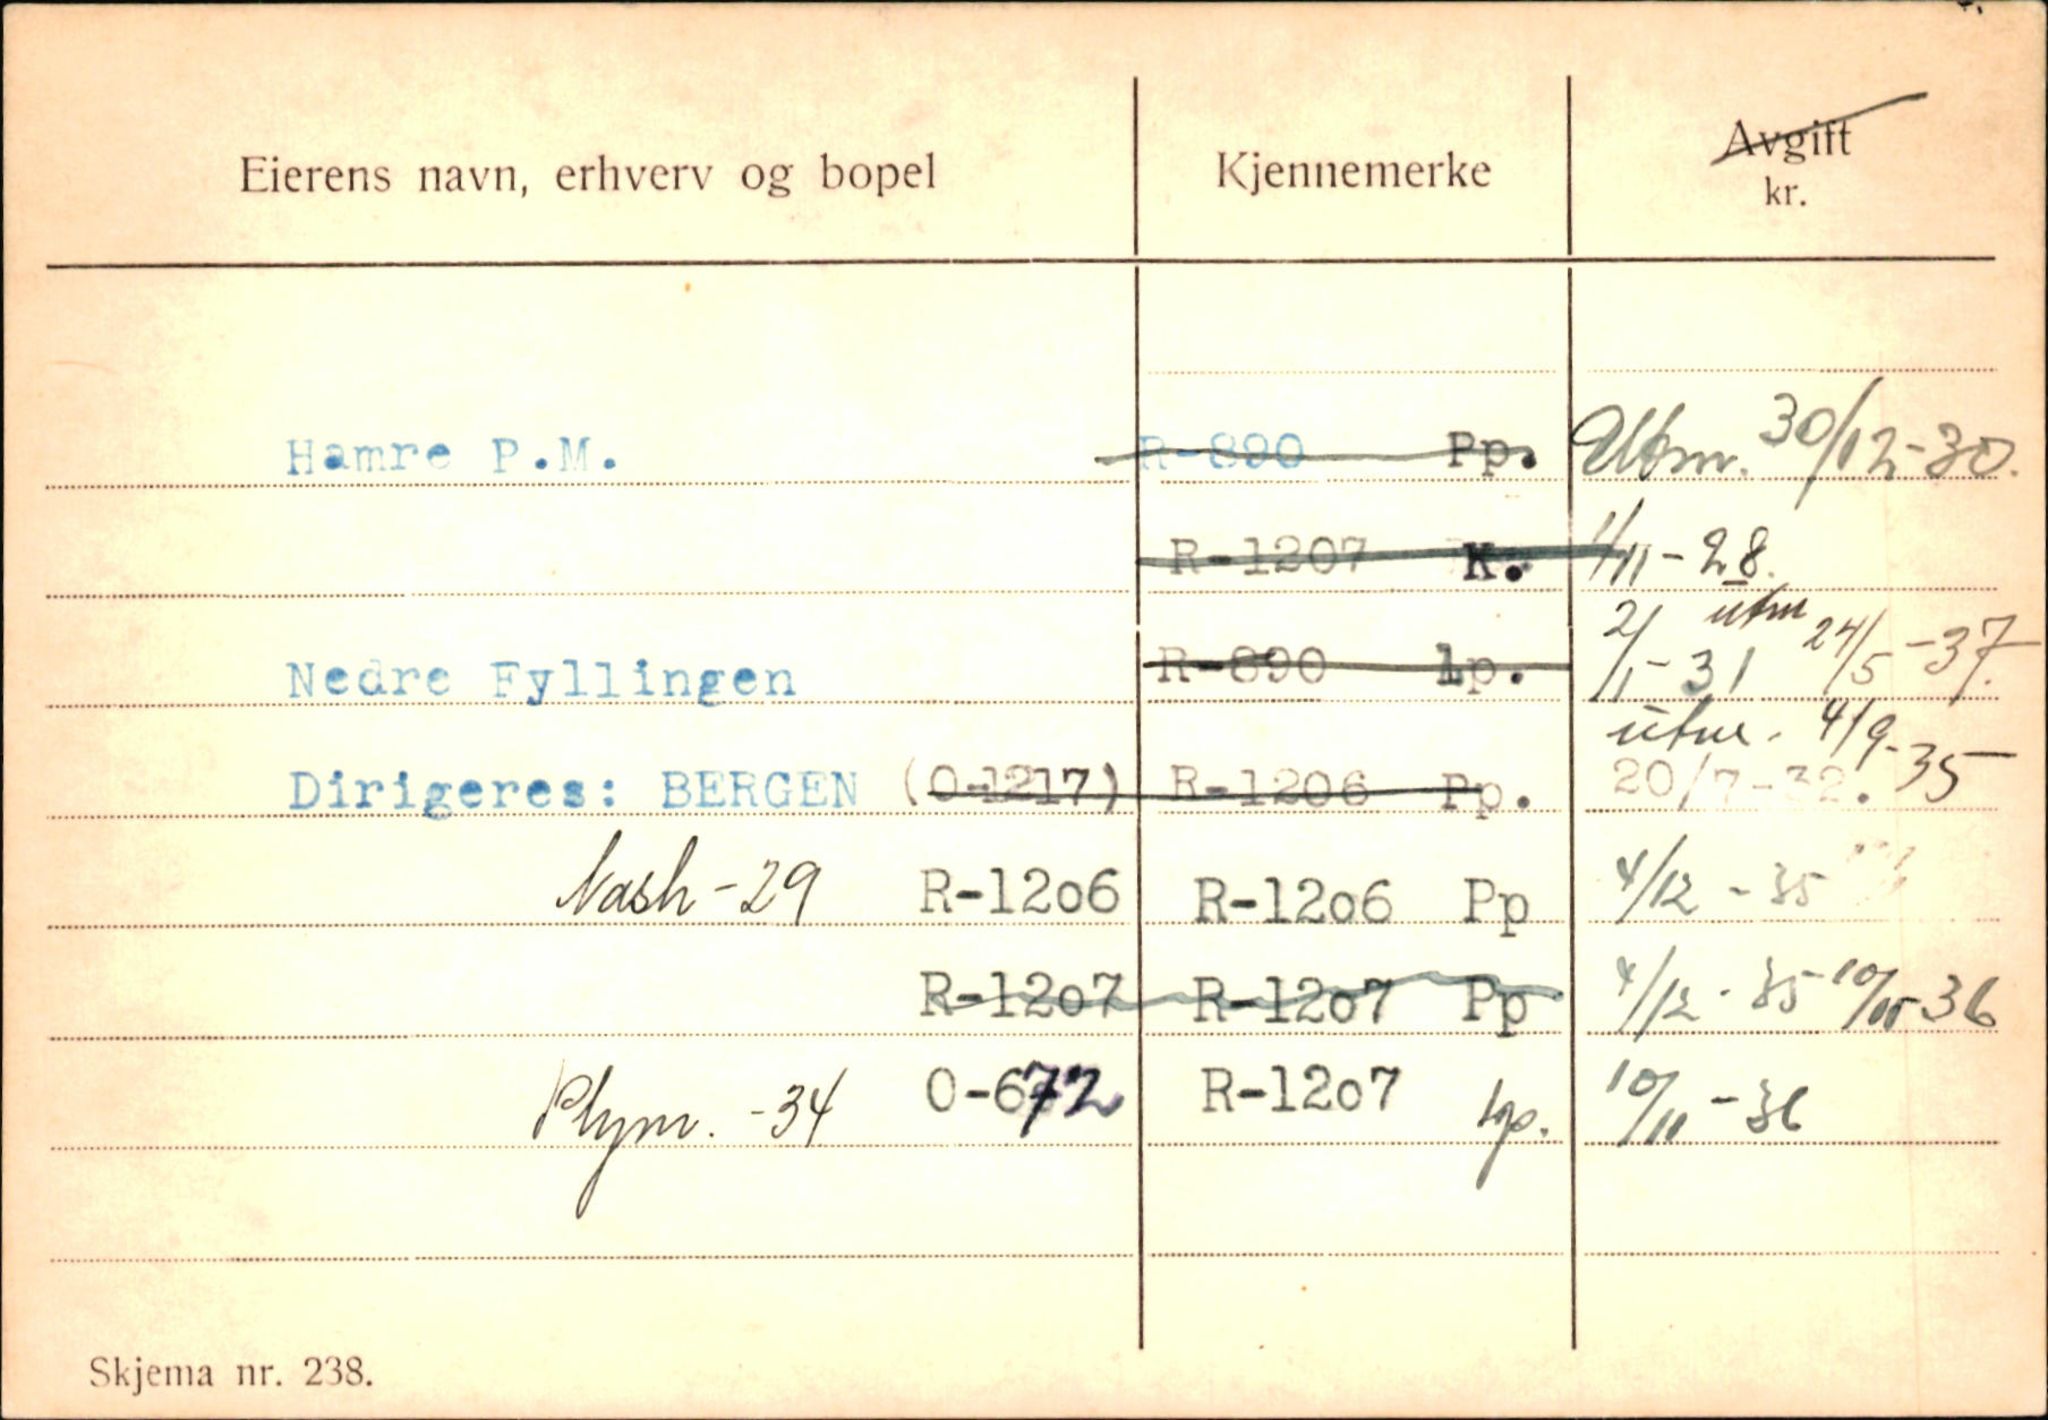 Eierens navn, erhverv og bopel Kjennemerke Avgift
kr.
Hamre P.M. R-890 Pp. Utm. 30/12-30.
R-1207 K. 1/11-28.
Nedre Fyllingen R-890 Lp. 2/1-31 utm 24/5-37.
utm. 4/9-35
Dirigeres: BERGEN (O-1217) R-1206 Pp. 20/7-32.
Nash-29 R-12o6 R-12o6 Pp 4/12-35
R-12o7 R-12o7 Pp 4/12-35 10/11-36
Plym. -34 O-672 R-12o7 Lp. 10/11-36
Skjema nr. 238.